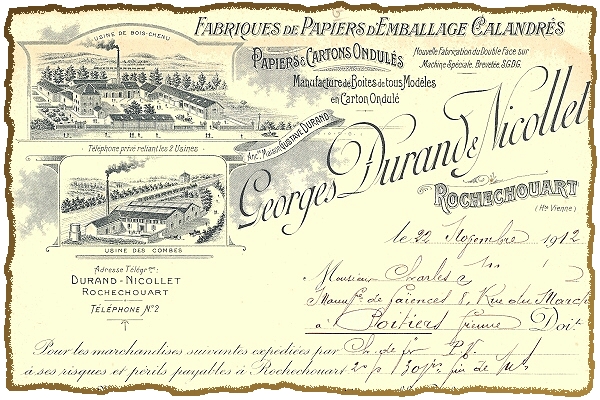 USINE DE BOIS-CHENU
FABRIQUES DE PAPIERS D'EMBALLAGE CALANDRÉS
PAPIERS & CARTONS ONDULÉS
Nouvelle Fabrication du Double Face sur
Machine Spéciale, Brevetée, S.G.D.G.
Manufacture de Boites de tous Modèles
en Carton Ondulé
Téléphone privé reliant les 2 Usines
Anc.ne Maison GUSTAVE DURAND
Georges Durand & Nicollet
ROCHECHOUART
(Hte Vienne)
USINE DES COMBES
le 22 Novembre 1912
Adresse Télégr.:
DURAND-NICOLLET
ROCHECHOUART
TÉLÉPHONE N°2
Monsieur Charles
Manuf. de faiences 8, Rue du Marché
à Poitiers Vienne Doit
Pour les marchandises suivantes expédiées par Ch. de fer P.V.
à ses risques et périls payables à Rochechouart